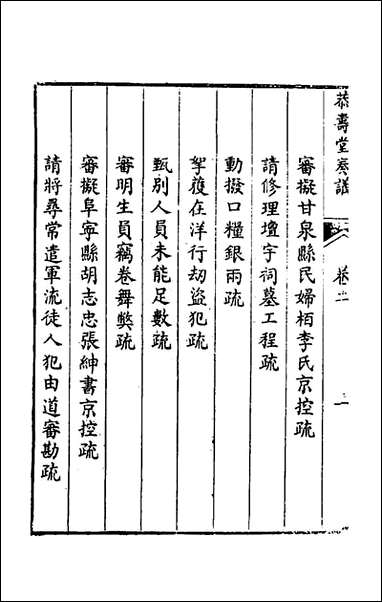 恭壽堂奏議 卷十二
審擬甘泉縣民婦栢李氏京控疏
請修理壇宇祠墓工程疏
動撥口糧銀兩疏
拏獲在洋行劫盜犯疏
甄別人員未能足數疏
審明生員竊卷舞獘疏
審擬阜寧縣胡志忠張紳書京控疏
請將尋常遣軍流徒人犯由道審勘疏